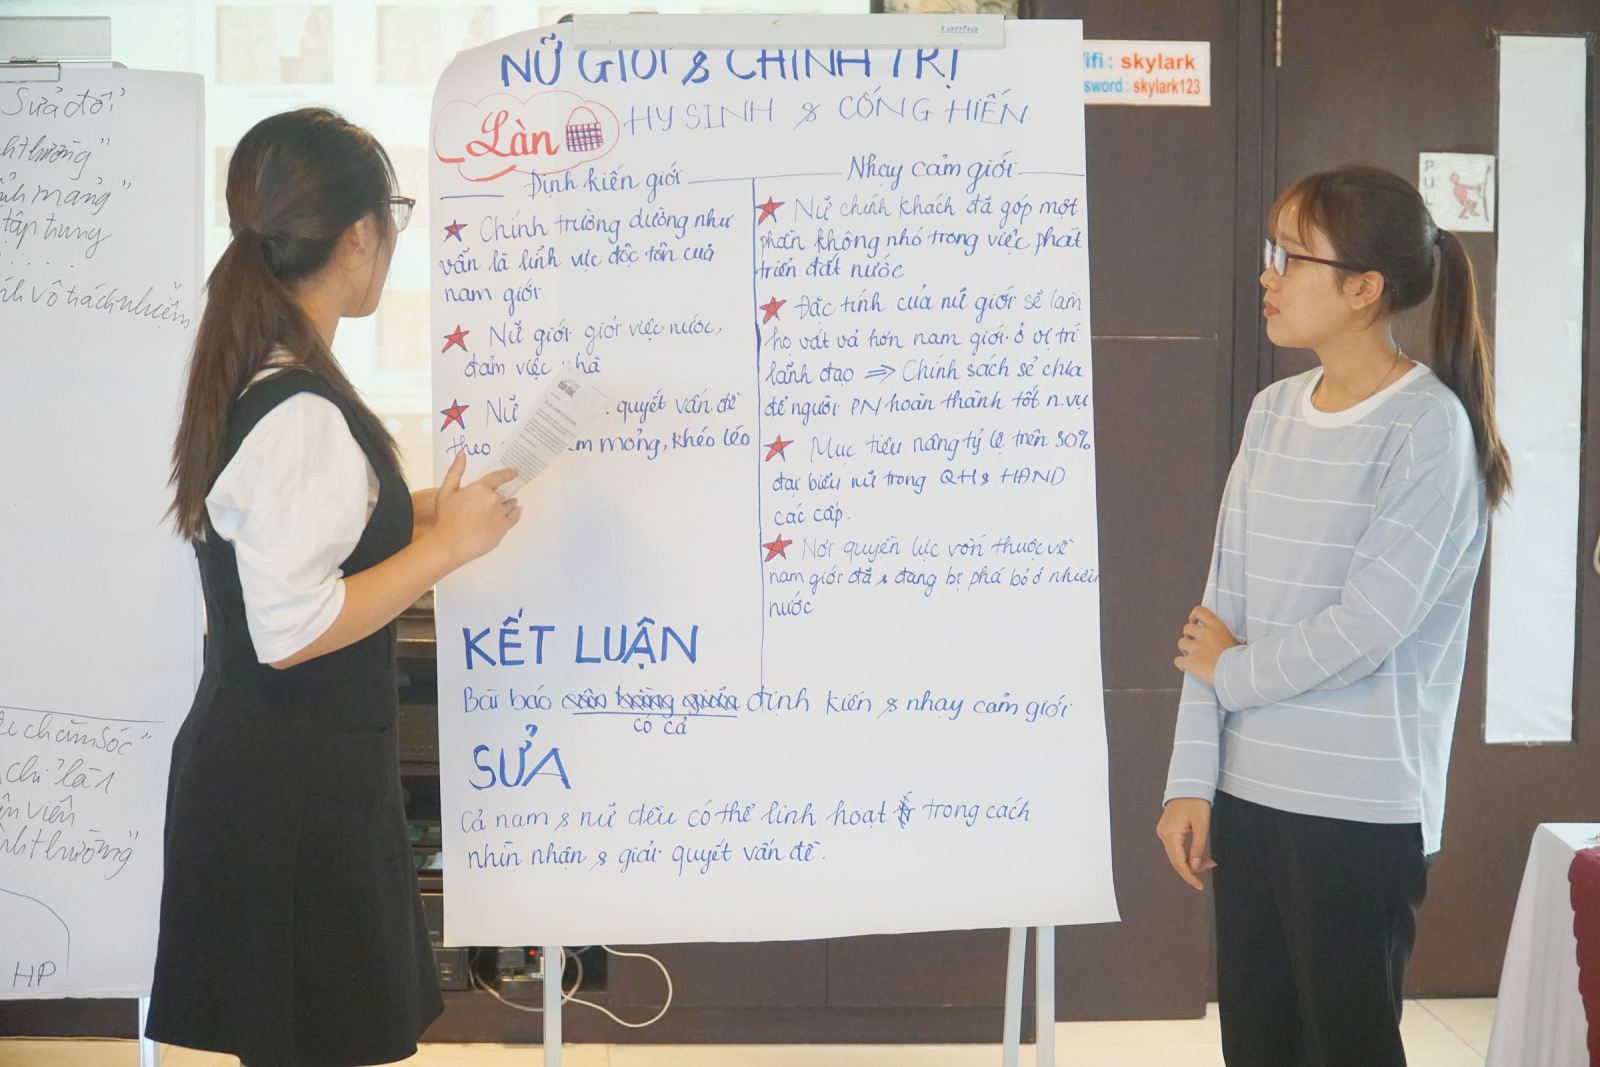 Sửa đổi
tập trung
vô trách nhiệm
chăm sóc"
chỉ là 1
viên
HP
tanha
NỮ GIỚI & CHÍNH TRỊ
HY SINH & CỐNG HIẾN
Làn
Định kiến giới
★ Chính trường dường như
vẫn là lĩnh vực độc tôn của
nam giới
★ Nữ giới giỏi việc nước,
đảm việc nhà
★ Nữ quyết vấn đề
theo mỏng, khéo léo
Nhạy cảm giới
★ Nữ chính khách đã góp một
phần không nhỏ trong việc phát
triển đất nước
★ Đặc tính của nữ giới sẽ làm
họ vất vả hơn nam giới ở vị trí
lãnh đạo => Chính sách sẽ chia
để người PN hoàn thành tốt n.vụ
★ Mục tiêu nâng tỷ lệ trên 30%
đại biểu nữ trong QH & HĐND
các cấp.
★ Nơi quyền lực vốn thuộc về
nam giới đã & đang bị phá bỏ ở nhiều
nước
KẾT LUẬN
Bài báo định kiến & nhạy cảm giới
có cả
SỬA
Cả nam & nữ đều có thể linh hoạt trong cách
nhìn nhận & giải quyết vấn đề.
ifi : skylark
sword : skylark123
PULL